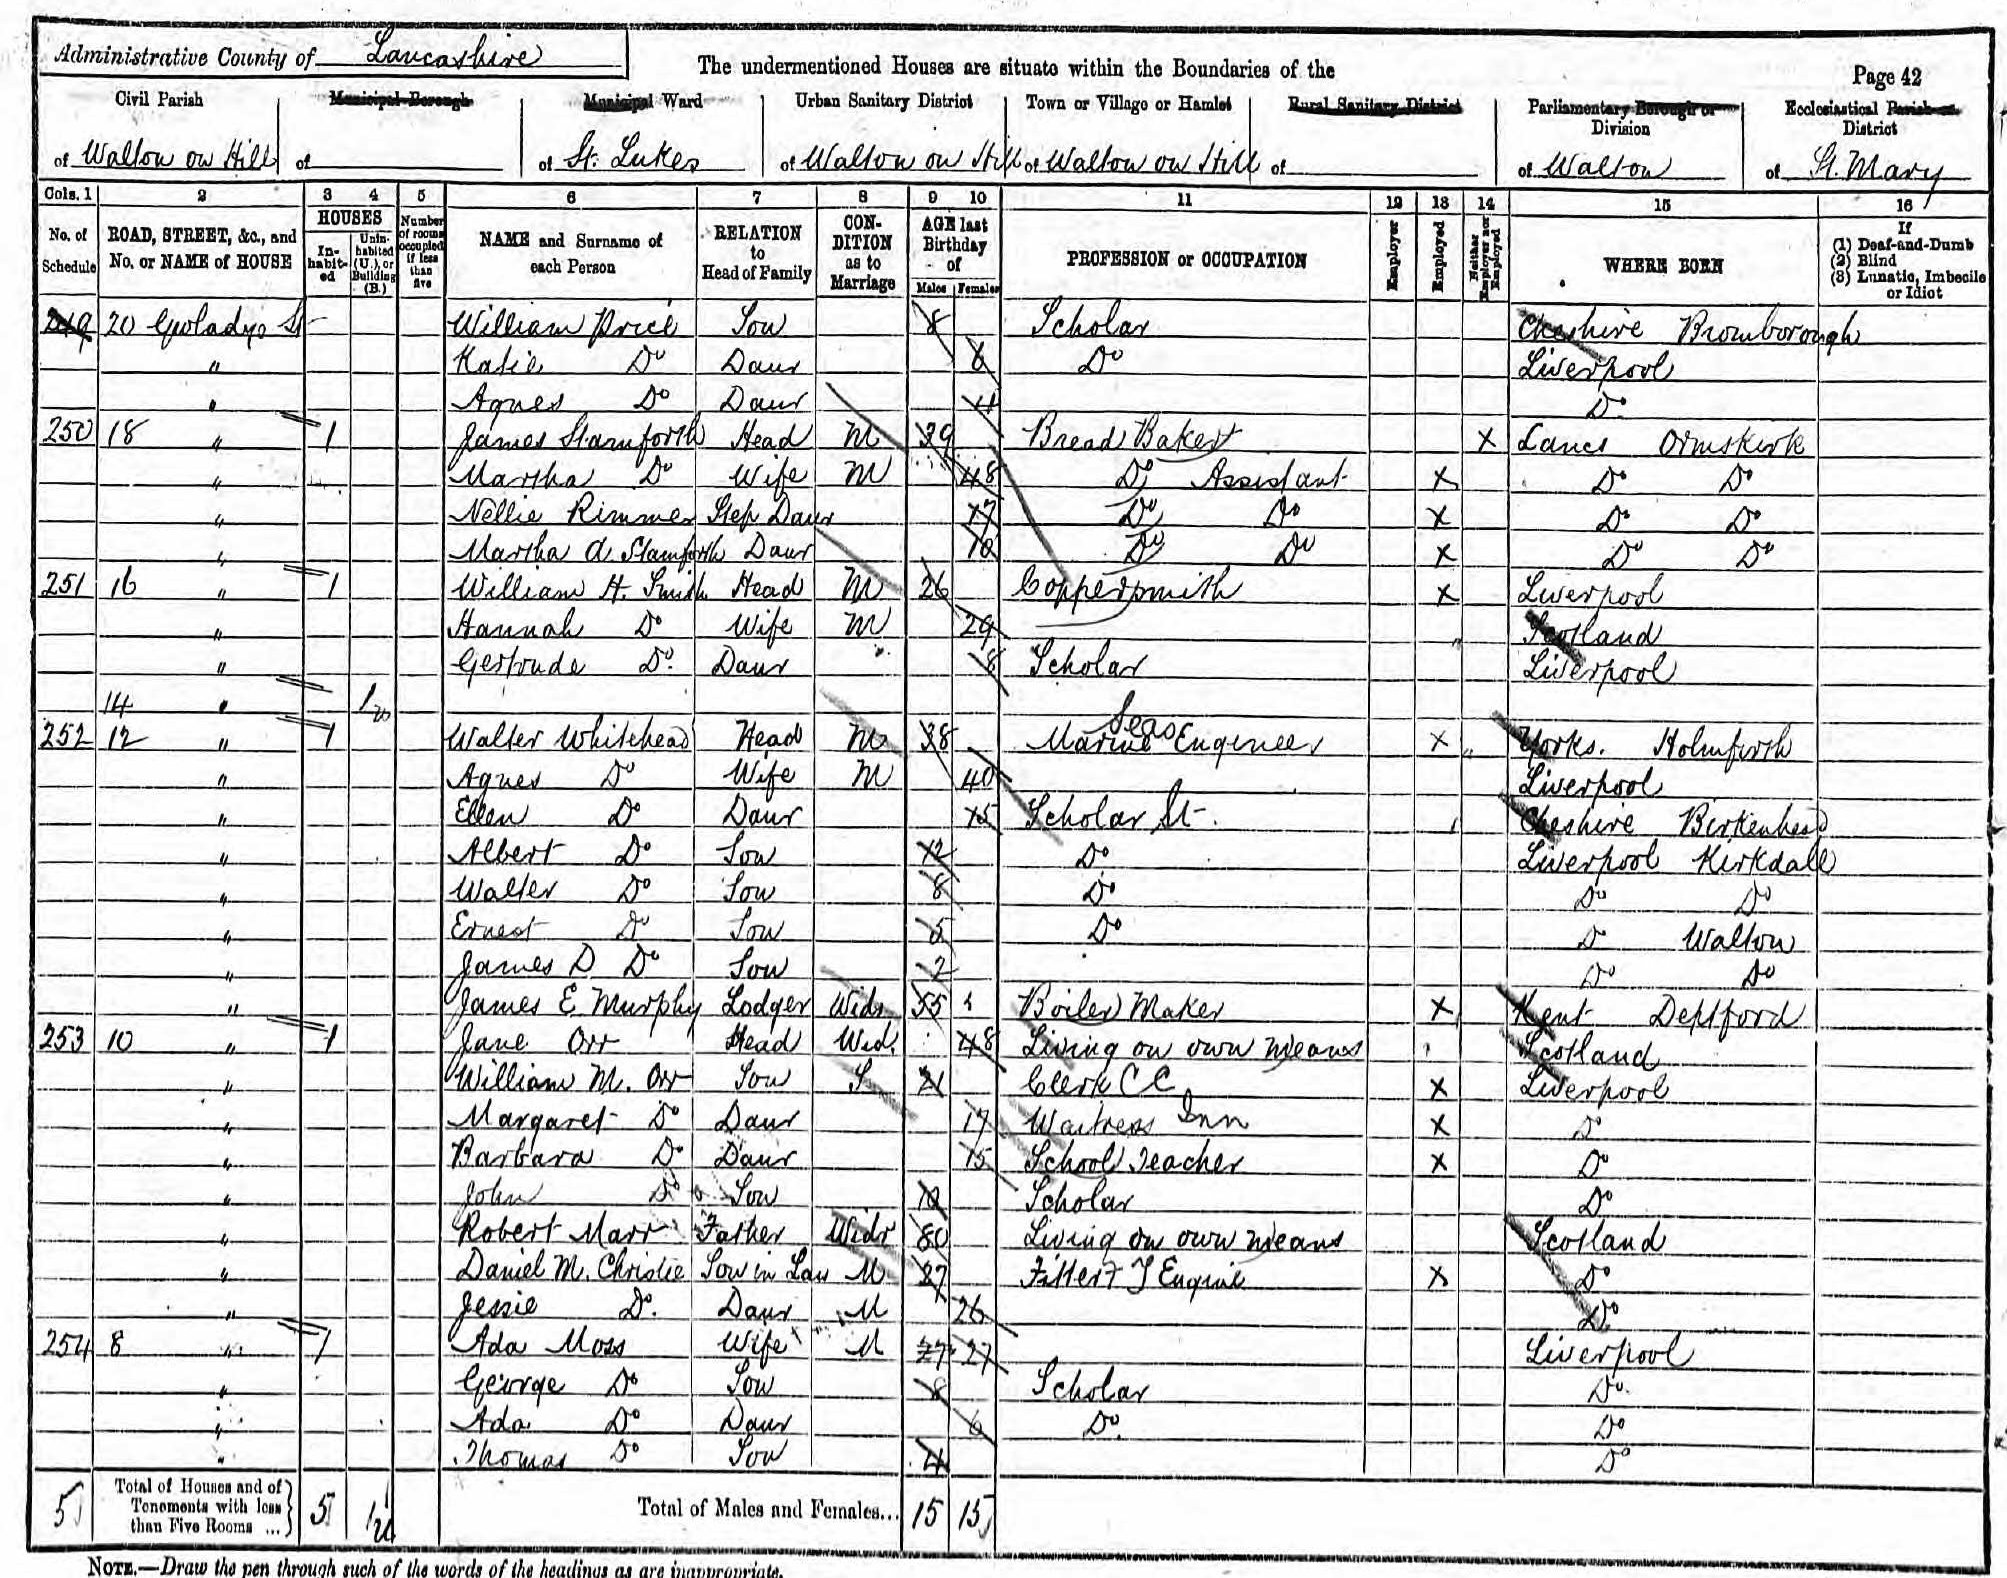 Administrative County of Lancashire
The undermentioned Houses are situate within the Boundaries of the
Page 42
Civil Parish | Municipal Borough | Municipal Ward | Urban Sanitary District | Town or Village or Hamlet | Rural Sanitary District | Parliamentary Borough or Division | Ecclesiastical Parish or District
of Walton on Hill | of | of St. Lukes | of Walton on Hill | of Walton on Hill | of | of Walton | of St. Mary
Cols. 1 | 2 | 3 | 4 | 5 | 6 | 7 | 8 | 9 | 10 | 11 | 12 | 13 | 14 | 15 | 16
No. of Schedule | ROAD, STREET, &c., and No. or NAME of HOUSE | HOUSES In-habit-ed | Unin-habited (U.), or Building (B.) | Number of rooms occupied if less than five | NAME and Surname of each Person | RELATION to Head of Family | CON-DITION as to Marriage | AGE last Birthday of Males | Females | PROFESSION or OCCUPATION | Employer | Employed | Neither Employer nor Employed | WHERE BORN | If (1) Deaf-and-Dumb (2) Blind (3) Lunatic, Imbecile or Idiot
249 20 Gwladys St William Price Son 8 Scholar Cheshire Bromborough
" Katie Do Daur 6 Do Liverpool
" Agnes Do Daur 4 Do
250 18 " 1 James Stamforth Head M 39 Bread Baker X Lancs Ormskirk
" Martha Do Wife M 48 Do Assistant X Do Do
" Nellie Rimmer Step Daur 17 Do Do X Do Do
" Martha A. Stamforth Daur 10 Do Do X Do Do
251 16 " 1 William H. Smith Head M 26 Coppersmith X Liverpool
" Hannah Do Wife M 29 Scotland
" Gertrude Do Daur 8 Scholar Liverpool
14 " 1
252 12 " 1 Walter Whitehead Head M 38 Marine Seas Engineer X Yorks. Holmfirth
" Agnes Do Wife M 40 Liverpool
" Ellen Do Daur 15 Scholar St. Cheshire Birkenhead
" Albert Do Son 12 Do Liverpool Kirkdale
" Walter Do Son 8 Do Do Do
" Ernest Do Son 5 Do Do Walton
" James D Do Son 2 Do Do
" James E Murphy Lodger Widr 55 Boiler Maker X Kent Deptford
253 10 " 1 Jane Orr Head Wid. 48 Living on own means Scotland
" William M. Orr Son S 21 Clerk C C X Liverpool
" Margaret Do Daur 17 Waitress Inn X Do
" Barbara Do Daur 15 School Teacher X Do
" John Do Son Scholar Do
" Robert Marr Father Widr 80 Living on own means Scotland
" Daniel M. Christie Son in Law M 27 Fitter Engine X Do
" Jessie Do. Daur M 26 Do
254 8 " 1 Ada Moss Wife M 27 27 Liverpool
" George Do Son 8 Scholar Do
" Ada Do Daur 6 Do. Do
" Thomas Do Son 4 Do
5 Total of Houses and of Tenements with less than Five Rooms ... 5 1 Total of Males and Females... 15 15
NOTE.—Draw the pen through such of the words of the headings as are inappropriate.